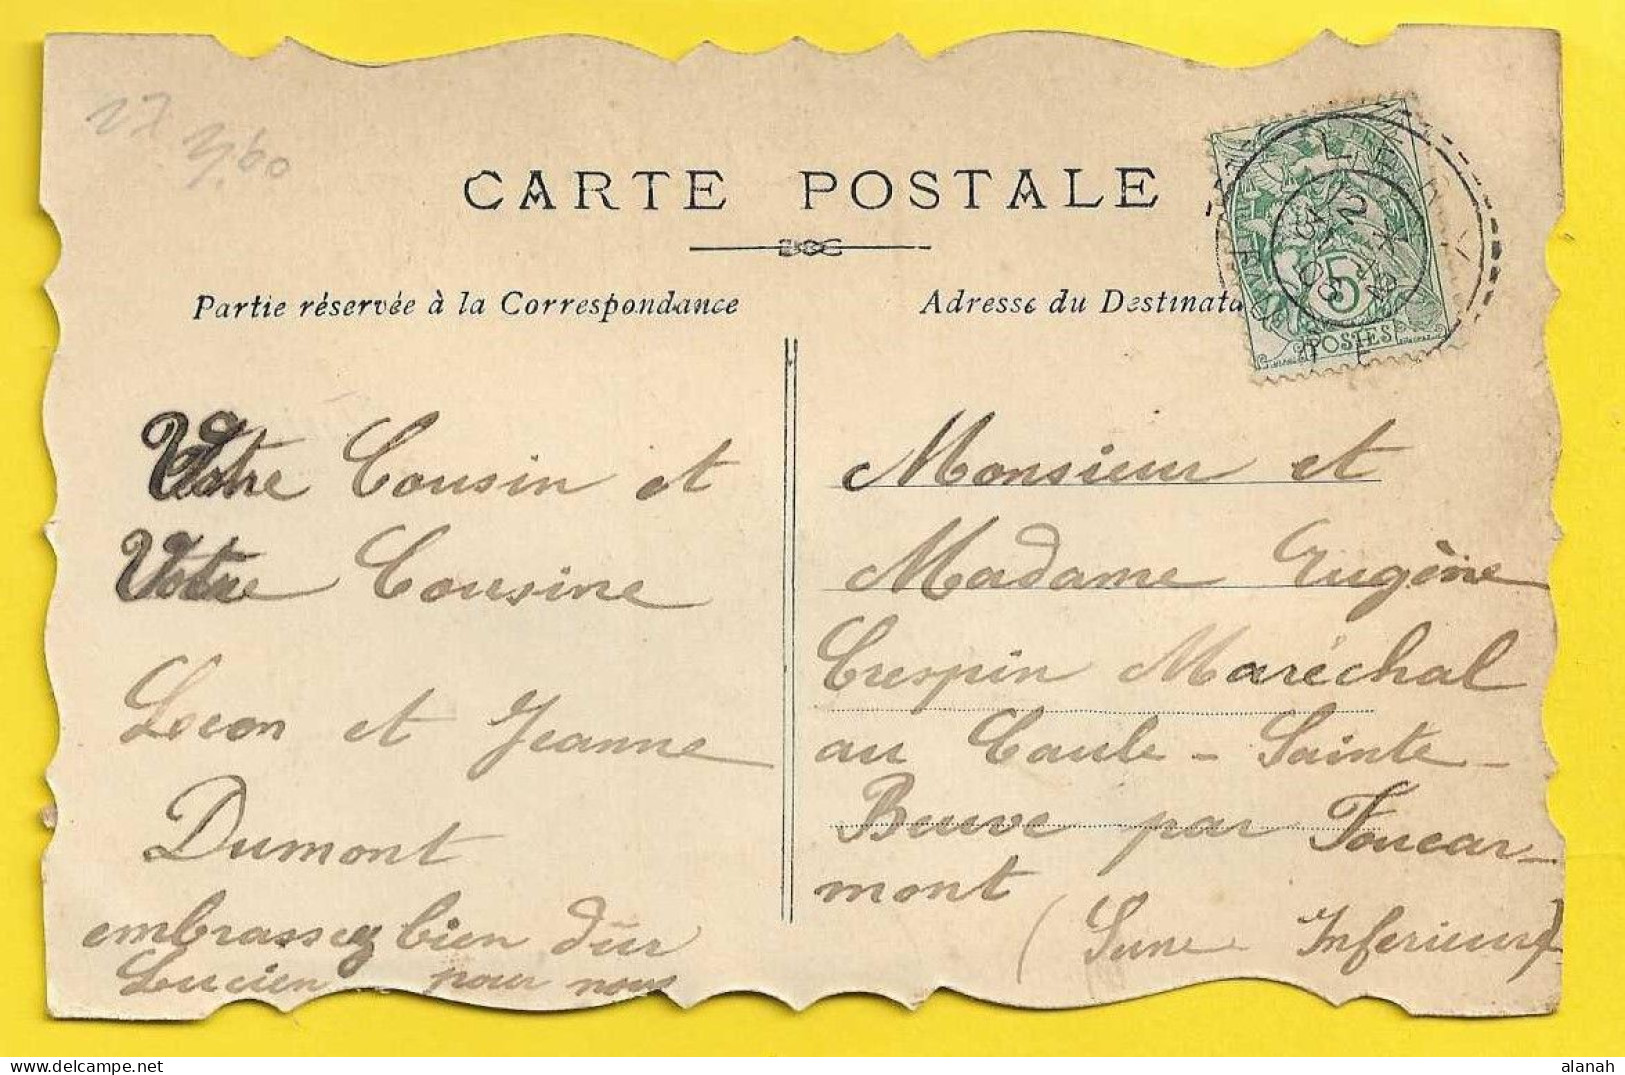 CARTE POSTALE
Partie réservée à la Correspondance
Votre Cousin et
Votre Cousine
Leon et Jeanne
Dumont
embrassez bien dur
Lucien pour nous
Adresse du Destinata
5
POSTES
Monsieur et
Madame Eugène
Crespin Maréchal
au Caule-Sainte-
Beuve par Foucar-
mont
(Seine Inferieure)
alanah